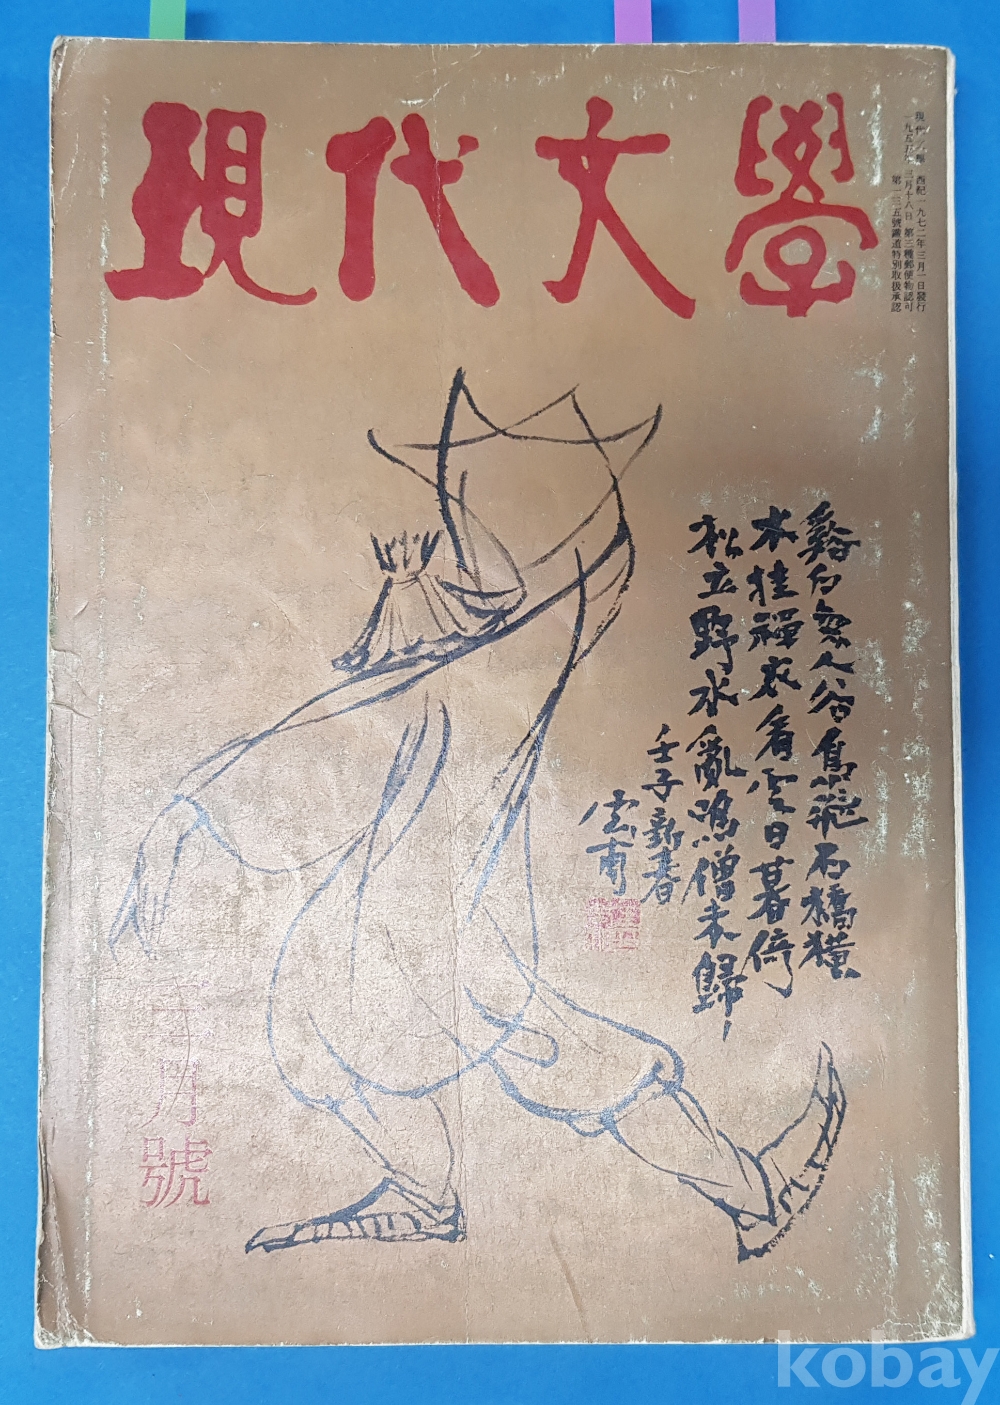 現代文學
西紀一九七二年三月一日發行
一九五五年三月十八日 第三種郵便物認可
第一三五號鐵道特別取扱承認
人谷鳥飛石橋橫
木挂禪衣看雲日暮倚
松立野水亂鳴僧未歸
壬子新春
雲甫
三月號
kobay